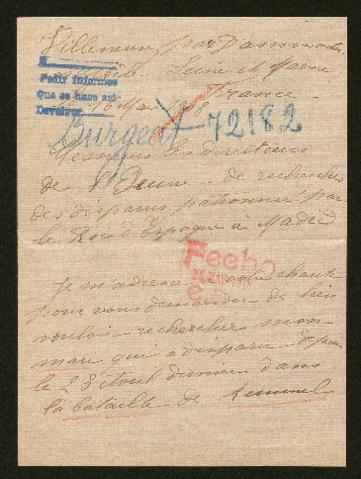 Villeneuve par Dammartin
Seine et Marne
France
Pedir informes
que se hace así
Devolver
le 16 Mai 1918
Burgeat 72182
Messieurs les directeurs
de l'Œuvre de recherches
des disparus patronné par
le Roi d'Espagne à Madrid
Fecha
Je m'adresse
pour vous demander de bien
vouloir rechercher mon
mari qui a disparu depuis
le 23 Avril dernier dans
la bataille de Kemmel